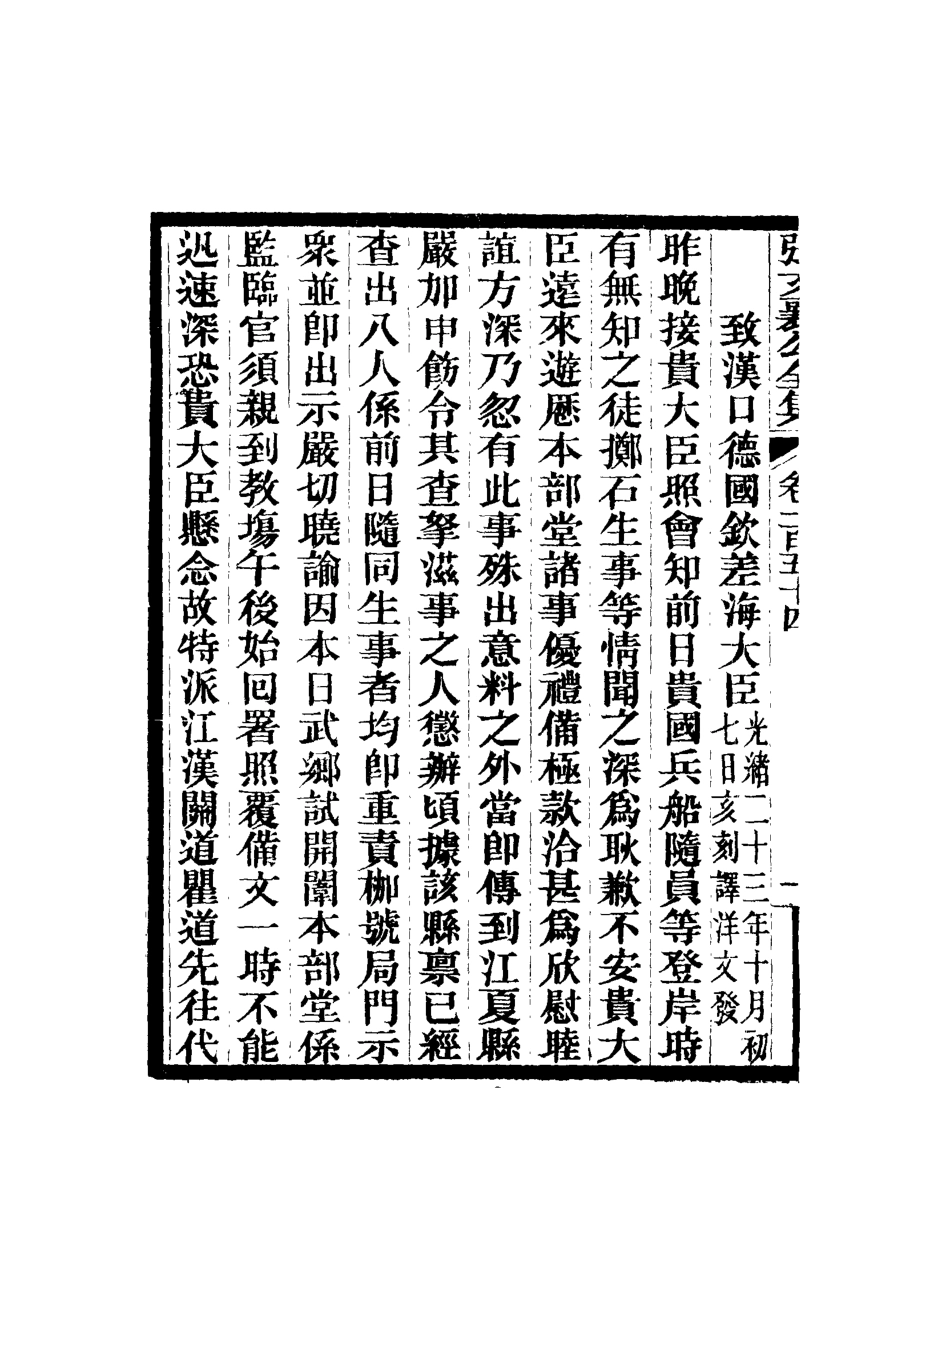 張文襄公全集 卷二百五十四 一
致漢口德國欽差海大臣 光緒二十三年十月初七日亥刻譯洋文發
昨晚接貴大臣照會知前日貴國兵船隨員等登岸時
有無知之徒擲石生事等情聞之深爲耿歉不安貴大
臣遠來遊厯本部堂諸事優禮備極款洽甚爲欣慰睦
誼方深乃忽有此事殊出意料之外當卽傳到江夏縣
嚴加申飭令其查拏滋事之人懲辦頃據該縣禀已經
查出八人係前日隨同生事者均卽重責枷號局門示
衆並卽出示嚴切曉諭因本日武鄉試開闈本部堂係
監臨官須親到教塲午後始回署照覆備文一時不能
迅速深恐貴大臣懸念故特派江漢關道瞿道先往代